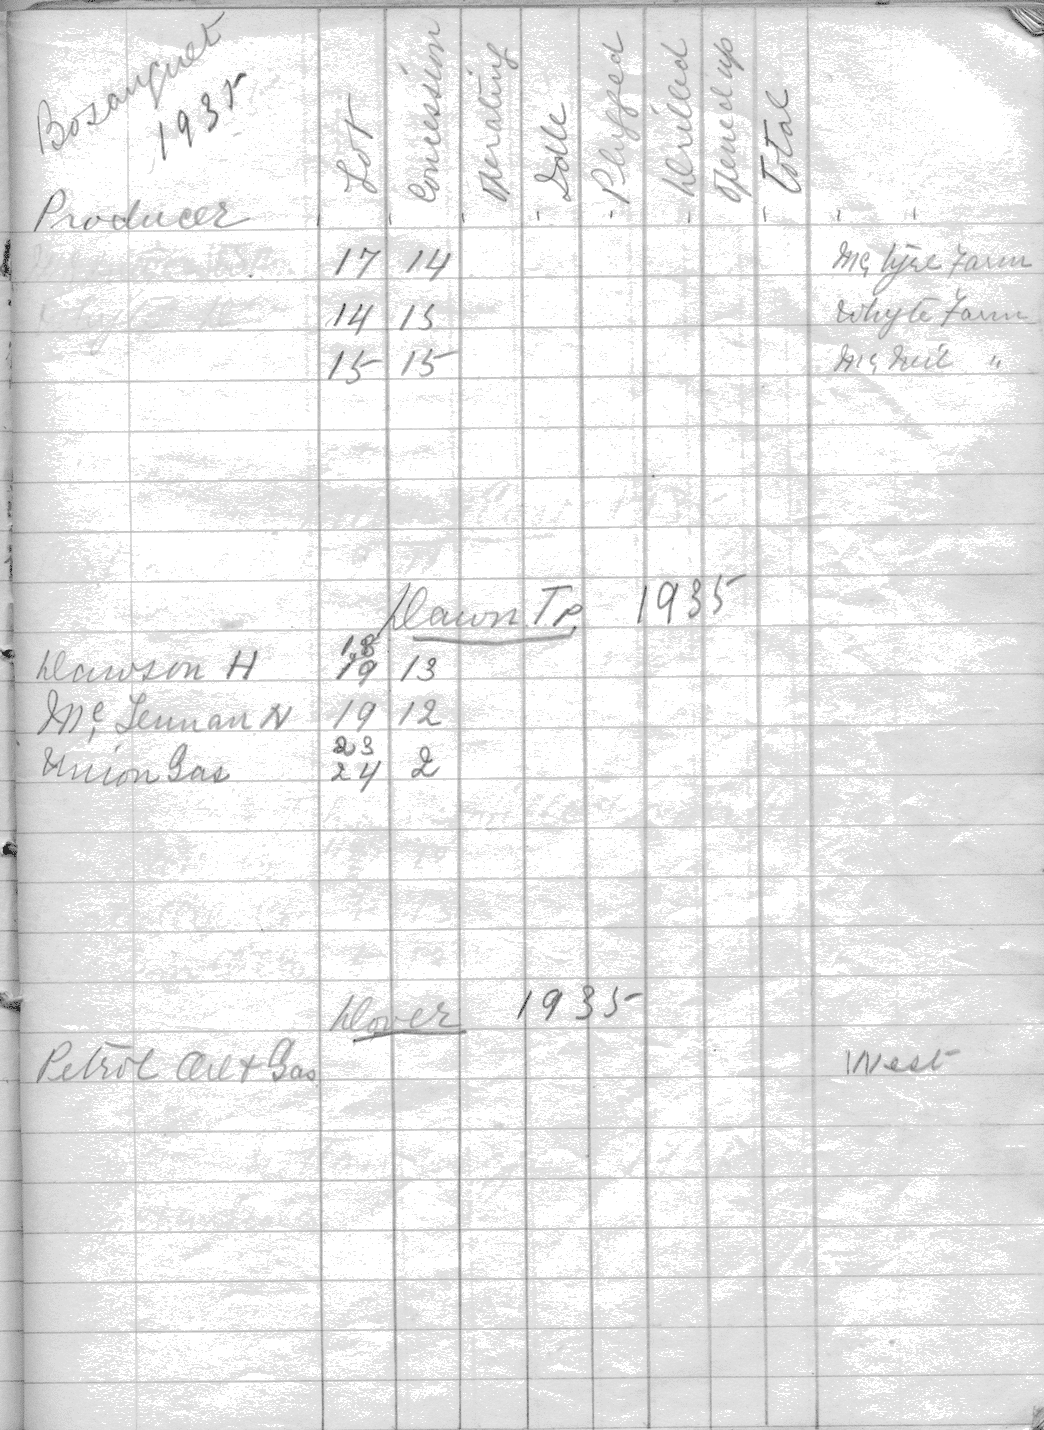 Bosanquet
1935
Producer Lot Concession Operating Idle Plugged Drilled Opened up Total " "
17 14 Farm
14 15 Whyte Farm
15 15 "
Dawn Tp. 1935
18
Dawson H 19 13
Mc Lennan N 19 12
23
Union Gas 24 2
Dover 1935
Petrol Oil & Gas West